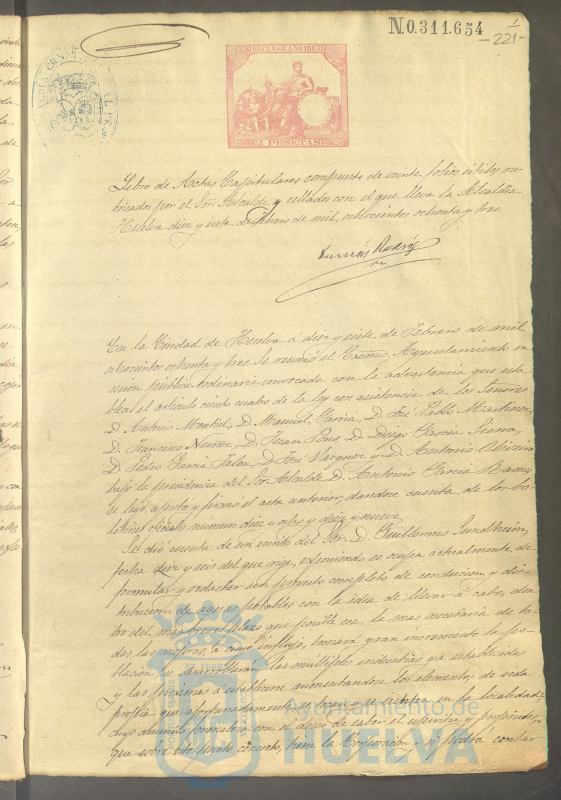 N.0.311.654
221
DIECISEIS AÑO 1883
12 PESETAS
Libro de Actas Capitulares compuesto de veinte folios útiles ru-
bricados por el Sor. Alcalde y sellados con el que lleva la Alcaldia
Huelva diez y siete de Febrero de mil ochocientos ochenta y tres.
En la Ciudad de Huelva á diez y siete de Febrero de mil
ochocientos ochenta y tres. Se reunió el Excmo. Ayuntamiento en
sesion publica ordinaria convocada con la advertencia que esta
blece el articulo ciento cuatro de la ley con asistencia de los Señores
D. Antonio Montiel, D. Manuel Garcia, D. José Pablo Martinez,
D. Francisco Nuñez, D. Juan Pons, D. Diego Garcia
D. Pedro Garcia Talon, D. José Vazquez y D. Antonio
bajo la presidencia del Sor. Alcalde D. Antonio Garcia Ramos
se leyó, aprobó y firmó el acta anterior, dandose cuenta de los bo-
letines oficiales numeros diez y ocho y diez y nueve.
Se dió cuenta de un escrito del Sor. D. Guillermo Sundheim,
fecha diez y seis del que rige, esponiendo se ocupa actualmente de
formular y redactar un proyecto completo de conduccion y dis-
tribucion de aguas potables con la idea de llevar á cabo, den
tro del mas breve plazo que posible sea, la mas necesaria de to-
das las mejoras, á cuyo influjo, tomará gran incremento la po-
blacion, y desarrollarán las multiples industrias ya establecidas
y las proximas á establecerse aumentandose los elementos de vida
propia que afortunadamente en la localidad,
cuyo anuncio formula con el deseo de saber el espiritu y propósitos,
que sobre este punto concreto, tiene la Corporacion y si podrá contar
Ayuntamiento de
HUELVA